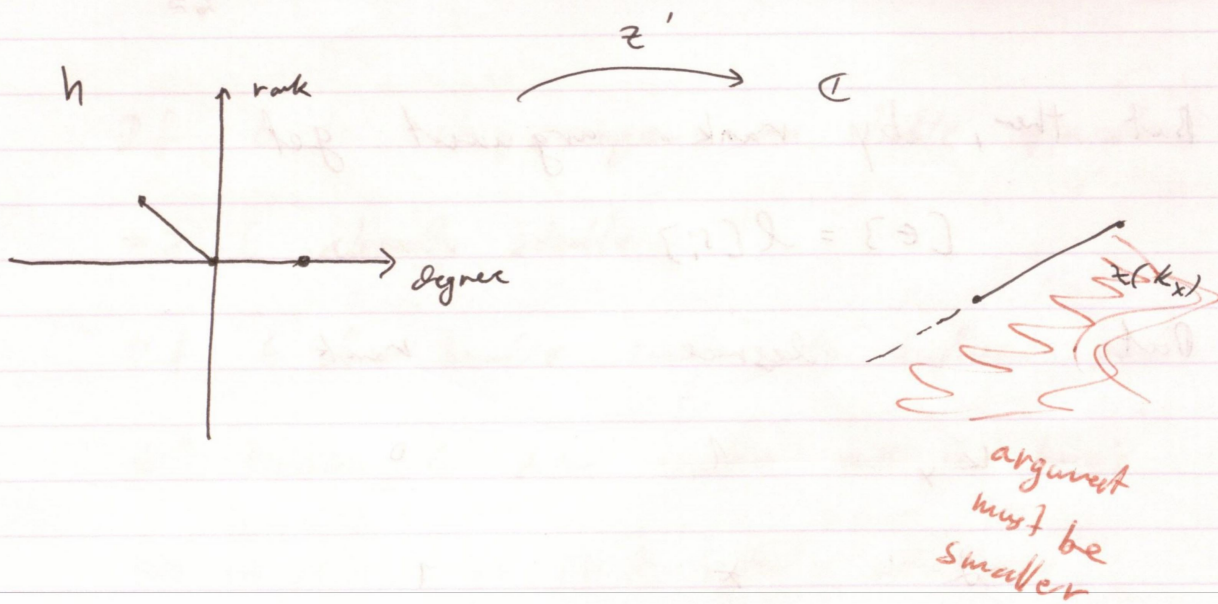 z'
h
rank
ℂ
degree
z(k_x)
argument
must be
smaller